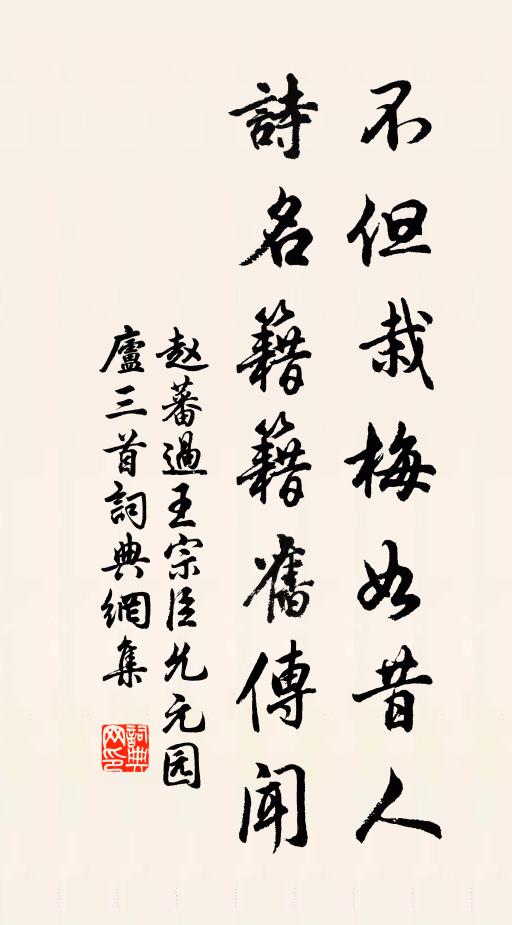 不但栽梅如昔人
詩名籍籍舊傳聞
赵蕃過王宗臣允元园
廬三首詞典網集
詞典网印